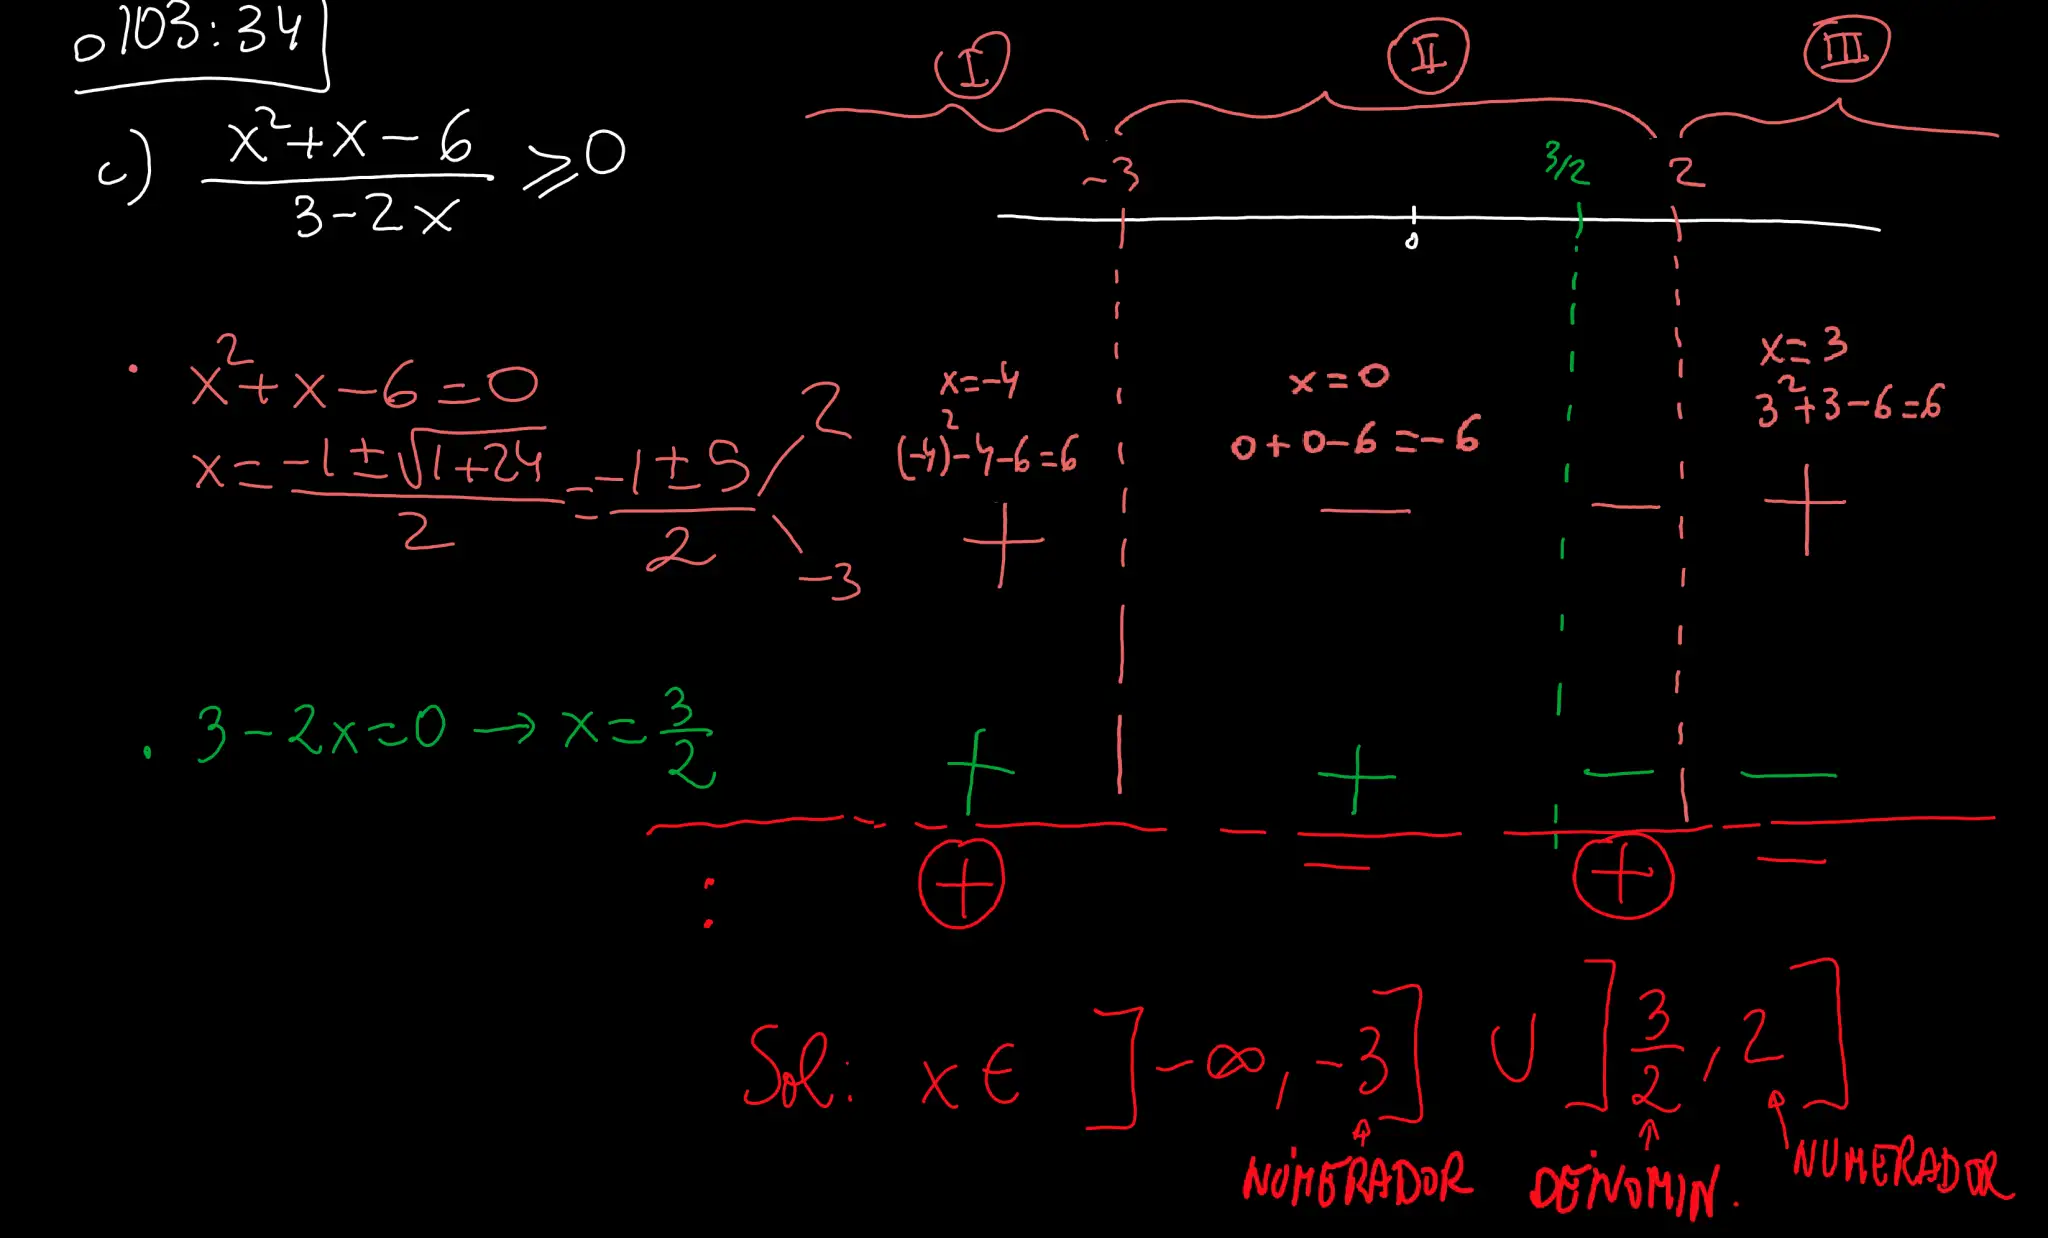 0103:34
c) (x²+x-6)/(3-2x) ⩾ 0
I II III
-3 3/2 2
0
• x²+x-6=0
x = (-1±√(1+24))/2 = (-1±5)/2
2
-3
x=-4
(-4)²-4-6=6
+
x=0
0+0-6=-6
− −
x=3
3²+3-6=6
+
• 3-2x=0 → x=3/2
+ + − −
: + − + −
Sol: x ∈ ]-∞, -3] ∪ ]3/2, 2]
↑ ↑ ↑
NUMERADOR DENOMIN. NUMERADOR